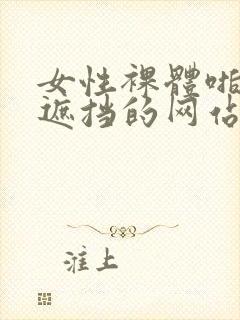 女性裸體啪
遮挡的网佔
淮上